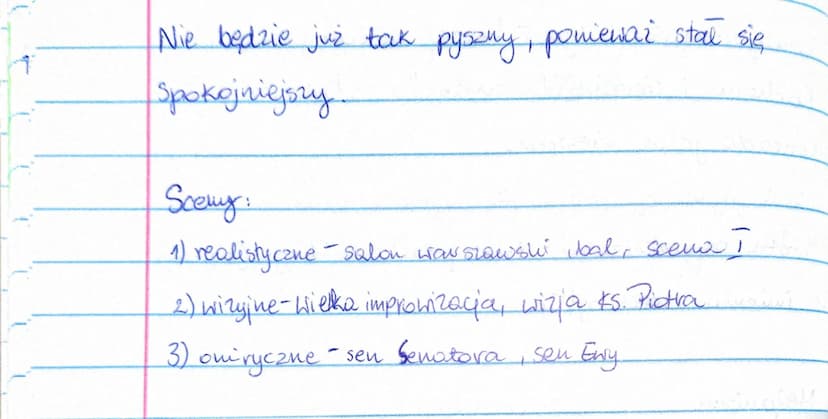 Nie będzie już tak pyszny, ponieważ stał się
spokojniejszy.
Sceny:
1) realistyczne - salon warszawski, bal, scena I
2) wizyjne - Wielka improwizacja, wizja ks. Piotra
3) oniryczne - sen Senatora, sen Ewy